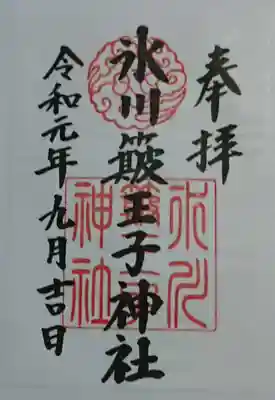 奉拝
氷川簸王子神社
令和元年九月吉日
氷川
神社